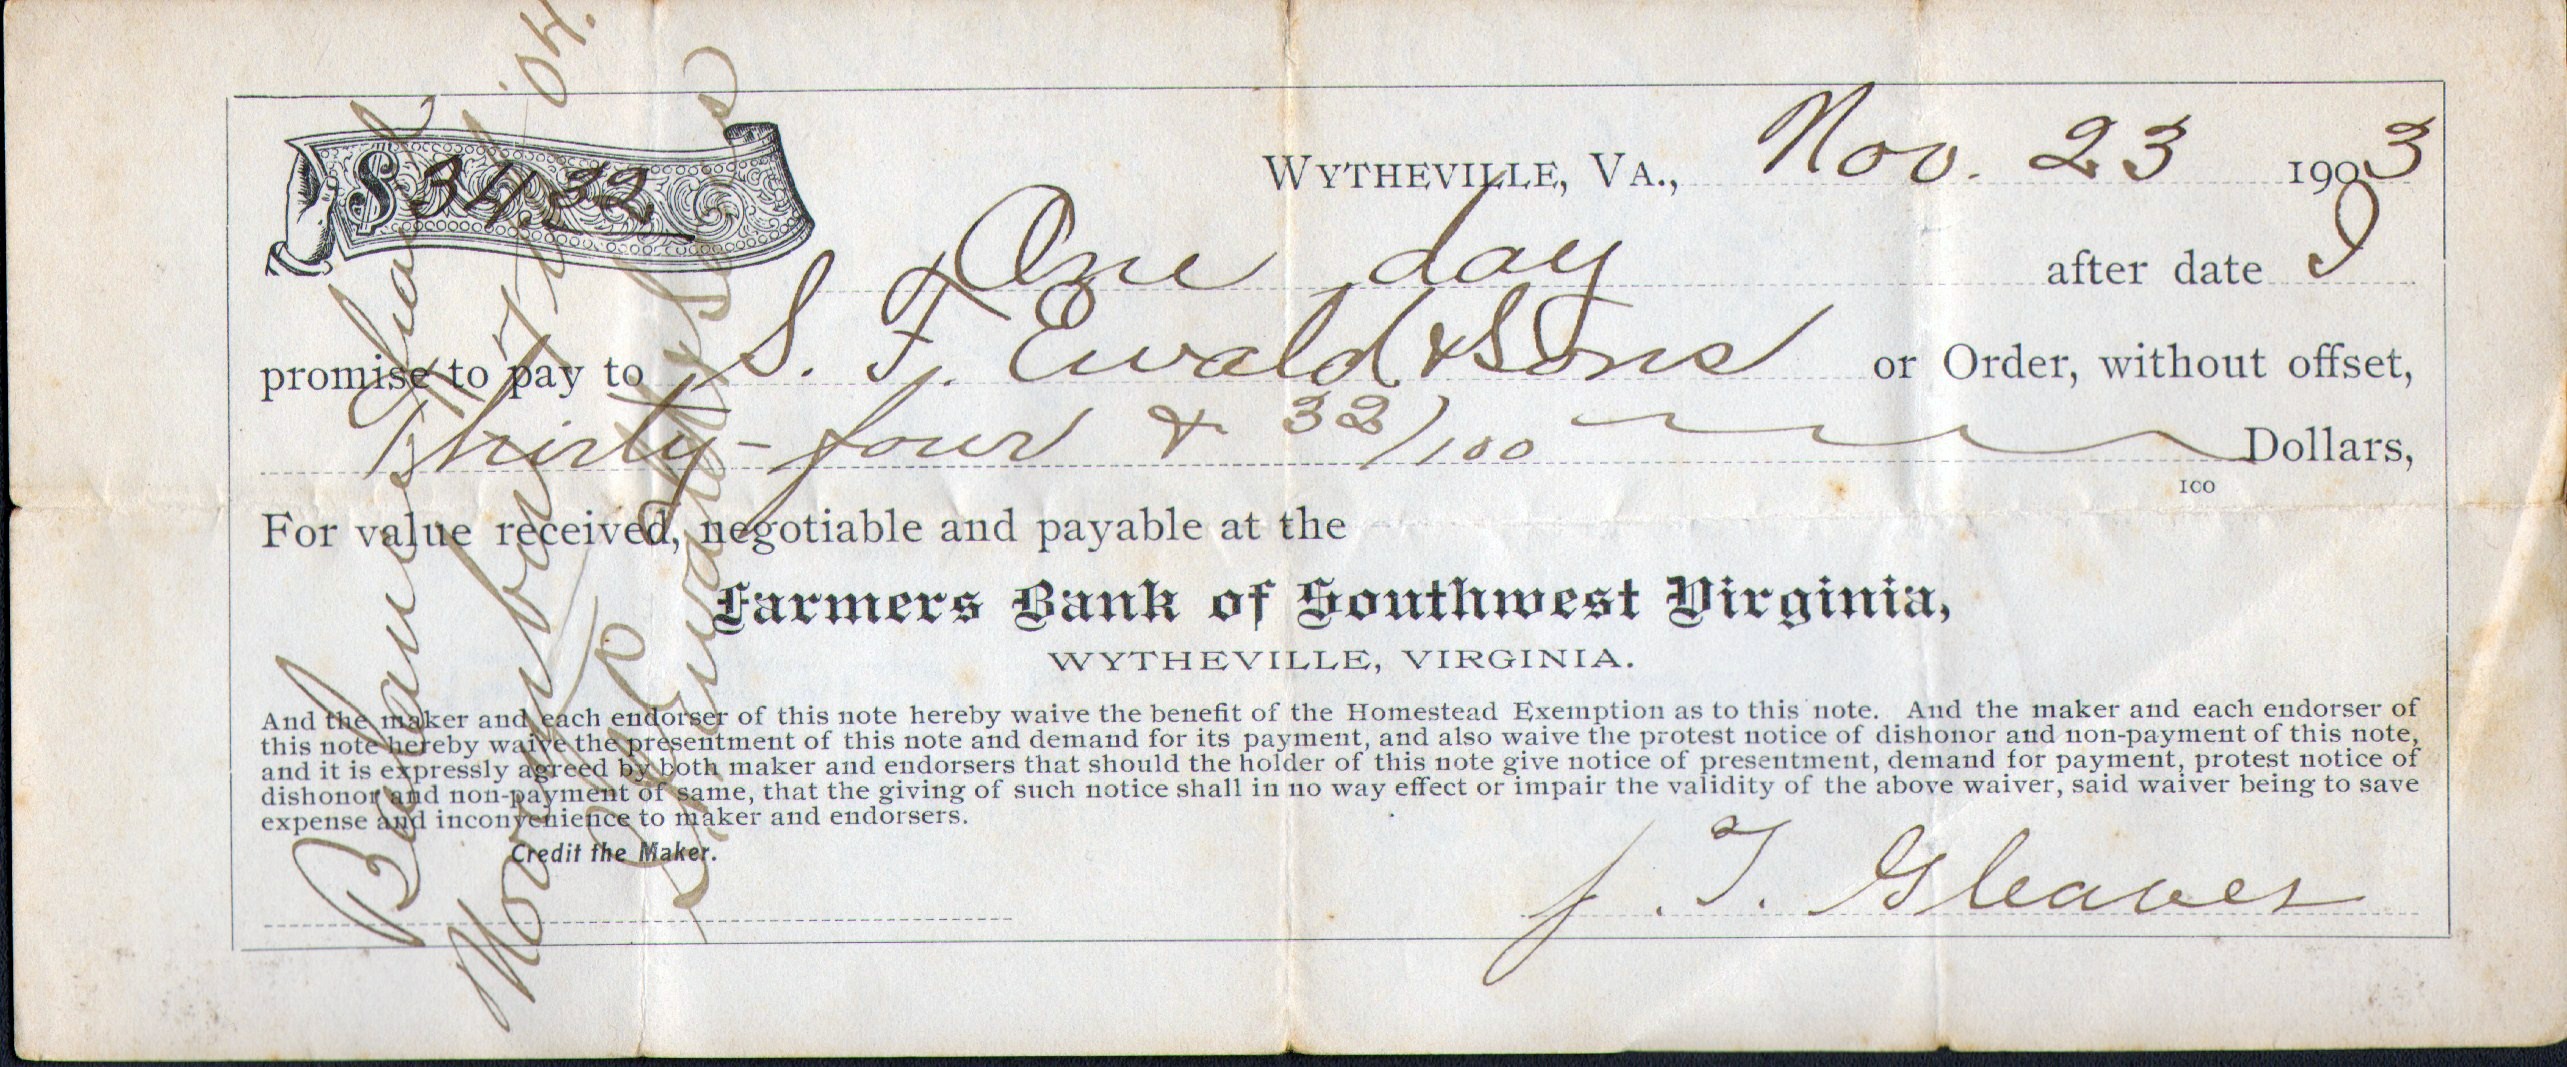 $ 34.32
Wytheville, Va., Nov. 23 1903
One day after date I
promise to pay to S. F. Ewald & Sons or Order, without offset,
Thirty-four & 32/100 Dollars,
100
For value received, negotiable and payable at the
Farmers Bank of Southwest Virginia,
WYTHEVILLE, VIRGINIA.
And the maker and each endorser of this note hereby waive the benefit of the Homestead Exemption as to this note. And the maker and each endorser of
this note hereby waive the presentment of this note and demand for its payment, and also waive the protest notice of dishonor and non-payment of this note,
and it is expressly agreed by both maker and endorsers that should the holder of this note give notice of presentment, demand for payment, protest notice of
dishonor and non-payment of same, that the giving of such notice shall in no way effect or impair the validity of the above waiver, said waiver being to save
expense and inconvenience to maker and endorsers.
Credit the Maker.
J. T. Gleaves
Balance
'04.
S. F. Ewald & Sons